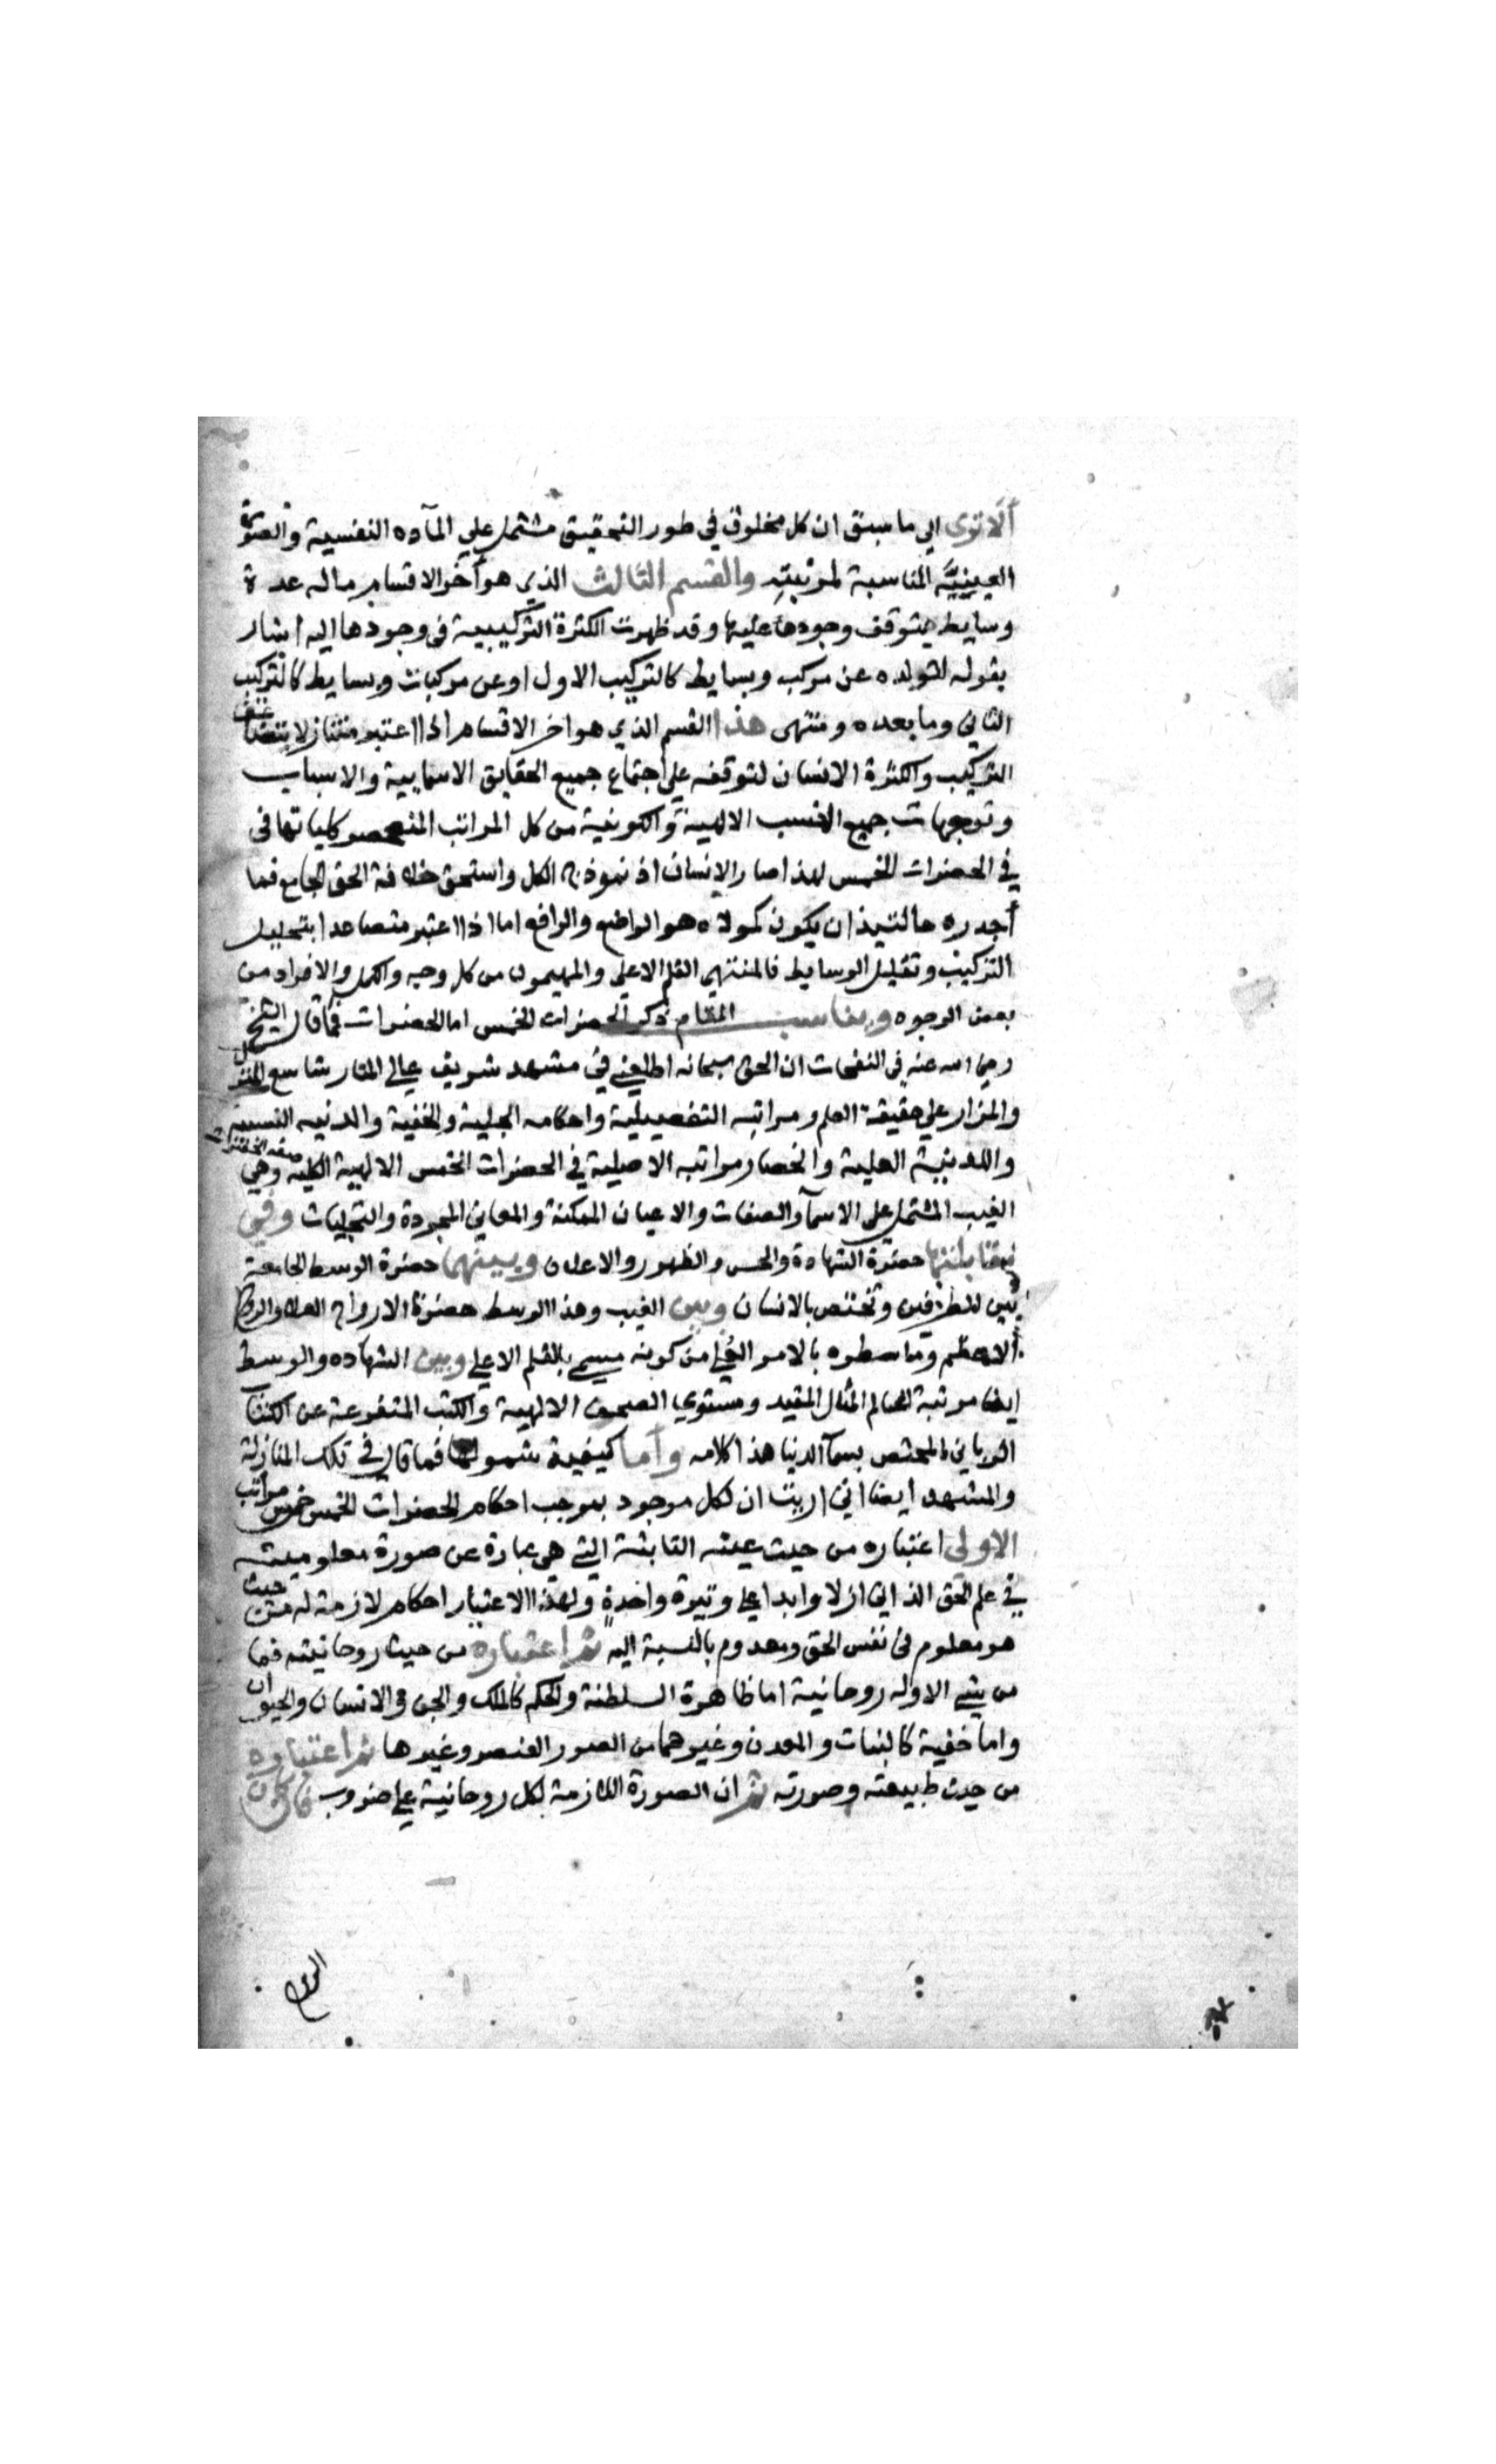 ألا ترى الي ما سبق ان كل مخلوق في طور التحقيق مشتمل علي المآده النفسية والصورة
العينيَّه المناسبة لمرتبتهِ والقسم الثالث الذي هو آخر الاقسام ماله عدة
وسايط يتوقف وجودها عليها وقد ظهرت الكثرة التركيبية في وجودها اليه اشار
بقوله المتولده عن مركب وبسايط كالتركيب الاول او عن مركبات وبسايط كالتركيب
الثاني وما بعده ومنتهى هذا القسم الذي هو اخر الاقسام اذا اعتبر متنازلا بتضاعف
التركيب والكثرة الانسان لتوقفه علي اجتماع جميع الحقايق الاسمايية والاسباب
وتوجهات جميع النسب الالهية والكونية من كل المراتب المنحصر كلياتها في
في الحضرات الخمس لهذا صار الانسان انموذج الكل واستحق خلافة الحق الجامع فما
أجدره حالتيذ ان يكون كمولاه هو الواضع والرافع اما اذا اعتبر متصاعدا بتحليل
التركيب وتقليل الوسايط فالمنتهي القلم الاعلى والمهيمون من كل وجه والكمل والافراد من
بعض الوجوه ويناسب المقام ذكر الحضرات الخمس اما الحضرات فما قال الشيخ
رضي الله عنه في النفحات ان الحق سبحانه اطلعني في مشهد شريف عالي المنار شاسع المنزل
والمزار علي حقيقة العلم ومراتبه التفصيلية واحكامه الجلية والخفية والدنيه النسبية
واللدنيية العلية وانحصار مراتبه الاصلية في الحضرات الخمس الالهية الكليه وهي
الغيب المشتمل على الاسمآ والصفات والاعيان الممكنة والمعاني المجردة والتجليات وفي
مقابلتها حضرة الشهادة والحس والظهور والاعلان وبينهما حضرة الوسط الجامعة
بين للطرفين وتختص بالانسان وبين الغيب وهذا الوسط حضرة الارواح العلا والروح
الاعظم وما سطره بالامر من كونه مسمي بالقلم الاعلي وبين الشهاده والوسط
ايضا مرتبة العالم المثال المقيد ومستوي الصحف الالهية والكتب المتفرعة عن الكتاب
الرباني المختص بسمآ الدنيا هذا كلامه وأما كيفية شمولها فما قال في تلك المنازلة
والمشهد ايضا اني اريت ان لكل موجود بموجب احكام الحضرات الخمس خمس مراتب
الاولى اعتباره من حيث عينه الثابتة التي هي عبارة عن صورة معلوميته
في علم الحق الذاتي ازلا وابدا علي وتيرة واحدةٍ ولهذا الاعتبار احكام لازمة له من حيث
هو معلوم في نفس الحق ومعدوم بالنسبة اليه ثم اعتباره من حيث روحانيته فما
من شي الا وله روحانية اما ظاهرة السلطنة والحكم كالملك والجن والانسان والحيوان
واما خفية كالنبات والمعدن وغيرهما من الصور العنصر وغيرها ثم اعتباره
من حيث طبيعته وصورته ثم ان الصورة اللازمة لكل روحانية علي ضروب